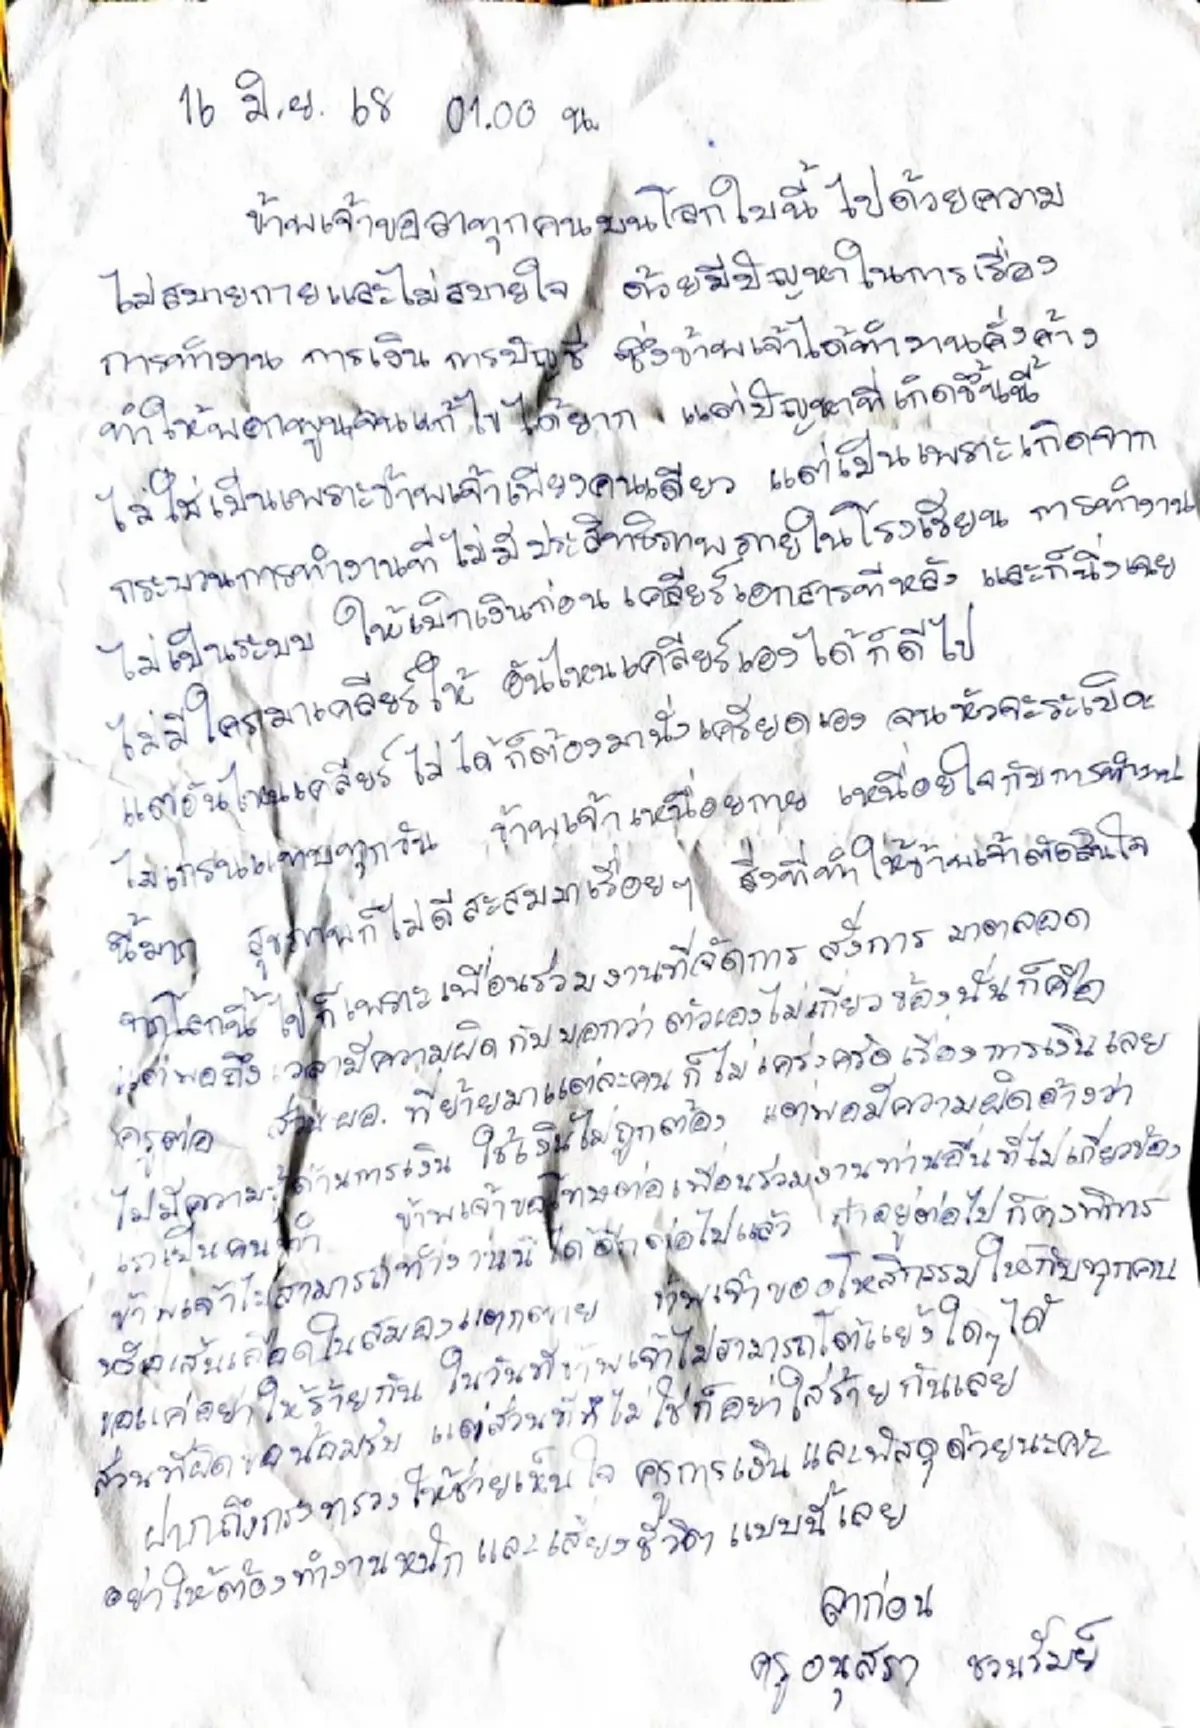 16 มิ.ย. 68 01.00 น.
ข้าพเจ้าขอลาทุกคนบนโลกใบนี้ ไปด้วยความ
ไม่สบายกายและไม่สบายใจ ด้วยมีปัญหาในการเรื่อง
การทำงาน การเงิน การบัญชี ซึ่งข้าพเจ้าได้ทำงานคั่งค้าง
ทำให้พอกพูนจนแก้ไขได้ยาก แต่ปัญหาที่เกิดขึ้นนี้
ไม่ใช่เป็นเพราะข้าพเจ้าเพียงคนเดียว แต่เป็นเพราะเกิดจาก
กระบวนการทำงานที่ไม่มีประสิทธิภาพภายในโรงเรียน การทำงาน
ไม่เป็นระบบ ให้เบิกเงินก่อน เคลียร์เอกสารทีหลัง และก็นิ่งเฉย
ไม่มีใครมาเคลียร์ให้ อันไหนเคลียร์เองได้ก็ดีไป
แต่อันไหนเคลียร์ไม่ได้ก็ต้องมานั่งเครียดเอง จนหัวจะระเบิด
ไมเกรนแทบทุกวัน ข้าพเจ้าเหนื่อยกาย เหนื่อยใจกับการทำงาน
นี้มาก สุขภาพก็ไม่ดีสะสมมาเรื่อยๆ สิ่งที่ทำให้ข้าพเจ้าตัดสินใจ
จากโลกนี้ไปก็เพราะเพื่อนร่วมงานที่จัดการ สั่งการ มาตลอด
แต่พอถึงเวลามีความผิดกับบอกว่า ตัวเองไม่เกี่ยวข้องนั่นก็คือ
ครูต่อ ส่วน ผอ. ที่ย้ายมาแต่ละคน ก็ไม่เคร่งครัด เรื่องการเงินเลย
ไม่มีความรู้ด้านการเงิน ใช้เงินไม่ถูกต้อง แต่พอมีความผิดอ้างว่า
เราเป็นคนทำ ข้าพเจ้าขอโทษต่อเพื่อนร่วมงานท่านอื่นที่ไม่เกี่ยวข้อง
ข้าพเจ้าไม่สามารถทำงานนี้ได้อีกต่อไปแล้ว ถ้าอยู่ต่อไปก็คงพิการ
หรือเส้นเลือดในสมองแตกตาย ข้าพเจ้าขออโหสิกรรมให้กับทุกคน
ขอแค่อย่าให้ร้ายกัน ในวันที่ข้าพเจ้าไม่สามารถโต้แย้งใดๆได้
ส่วนที่ผิดขอน้อมรับ แต่ส่วนที่ที่ไม่ใช่ก็อย่าใส่ร้ายกันเลย
ฝากถึงกระทรวงให้ช่วยเห็นใจ ครูการเงิน และพัสดุด้วยนะคะ
อย่าให้ต้องทำงานหนัก และเสี่ยงชีวิต แบบนี้เลย
ลาก่อน
ครู อนุสรา ชวนรัมย์